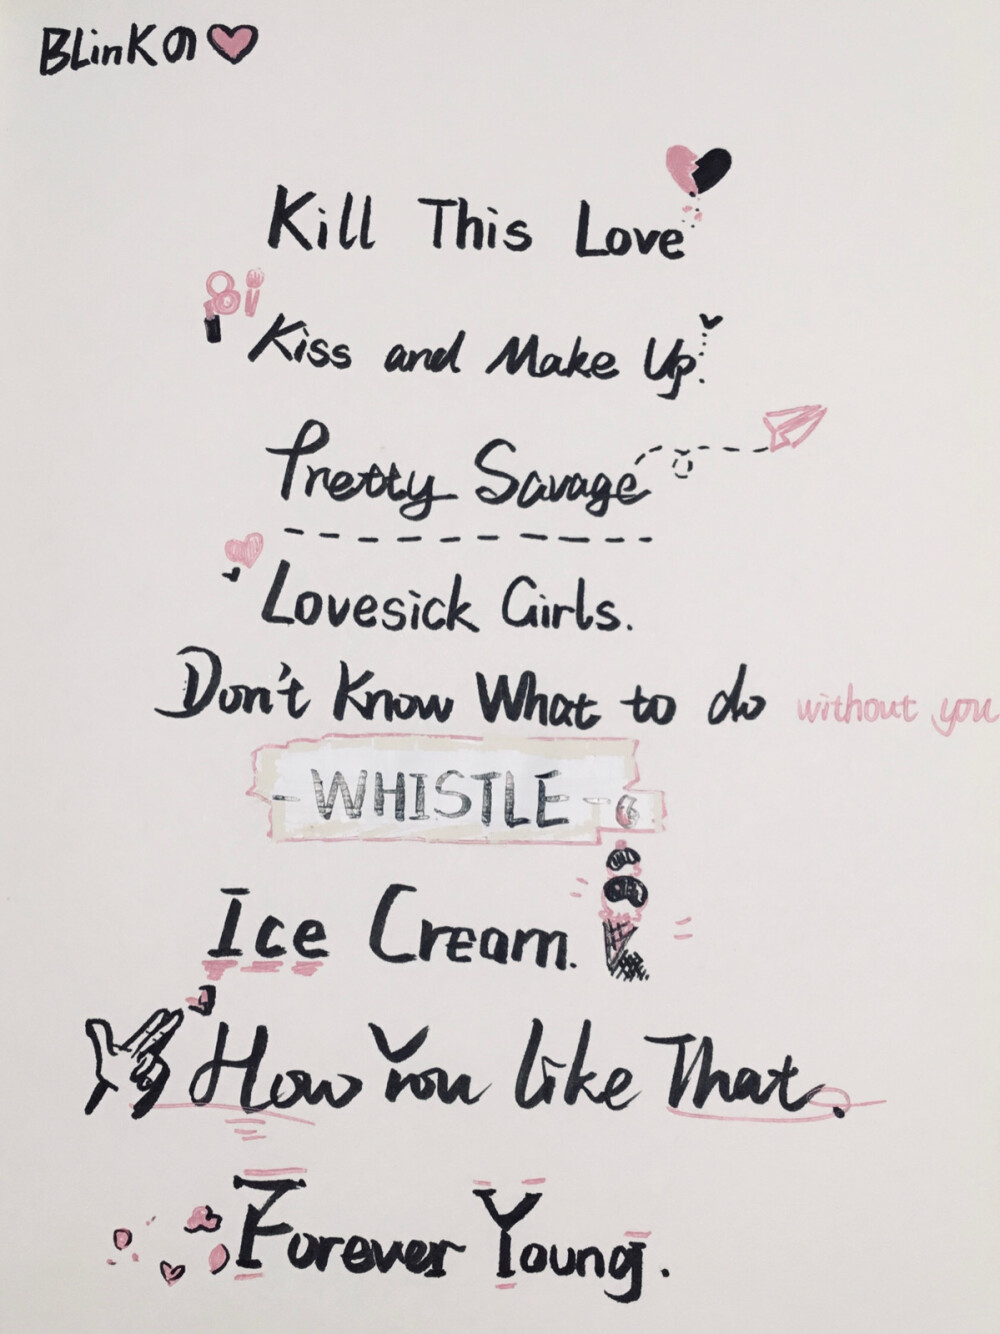 BLinKの
Kill This Love
Kiss and Make Up.
Pretty Savage
Lovesick Girls.
Don't Know What to do without you
- WHISTLE -
Ice Cream.
How You like That.
Forever Young.